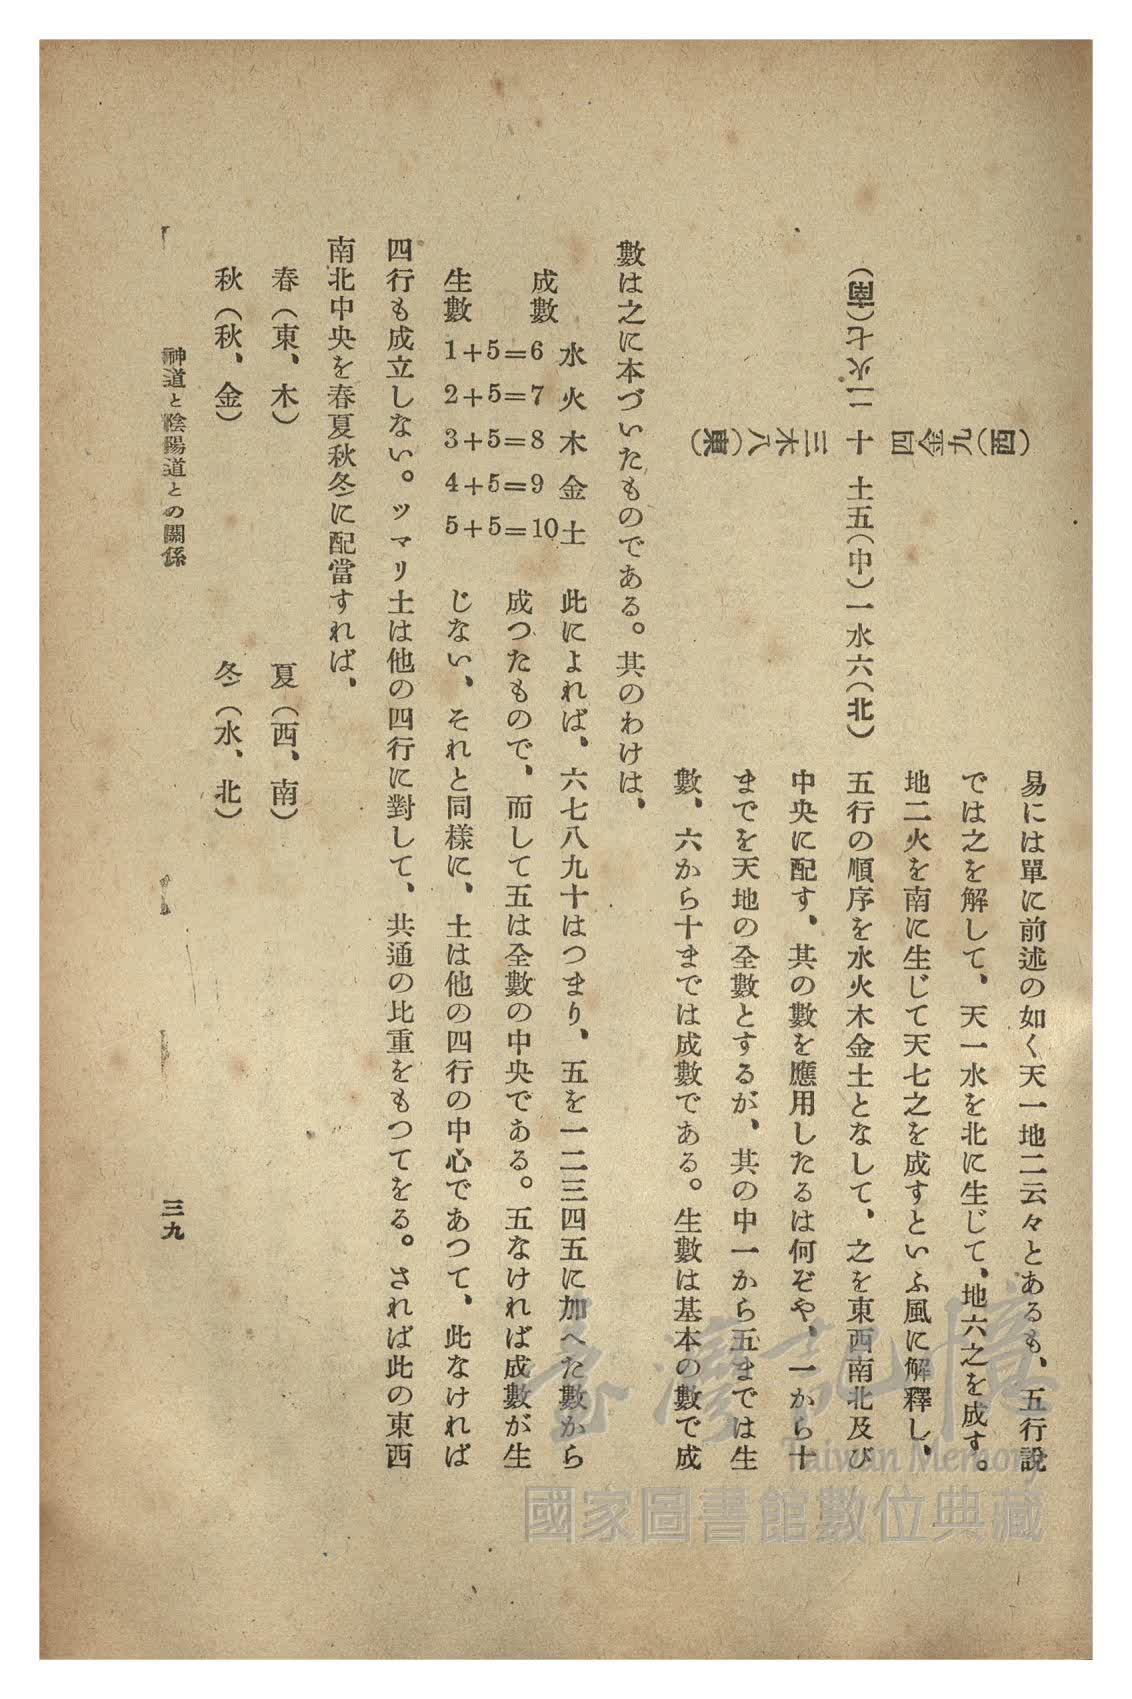 易には單に前述の如く天一地二云々とあるも、五行說
では之を解して、天一水を北に生じて、地六之を成す。
地二火を南に生じて天七之を成すといふ風に解釋し、
五行の順序を水火木金土となして、之を東西南北及び
中央に配す、其の數を應用したるは何ぞや、一から十
までを天地の全數とするが、其の中一から五までは生
數、六から十までは成數である。生數は基本の數で成
(西)九金四
(南)七火二 十 土五(中)一水六(北)
三木八(東)
數は之に本づいたものである。其のわけは、
成數 水 火 木 金 土
生數 1+5=6 2+5=7 3+5=8 4+5=9 5+5=10
此によれば、六七八九十はつまり、五を一二三四五に加へた數から
成つたもので、而して五は全數の中央である。五なければ成數が生
じない、それと同樣に、土は他の四行の中心であつて、此なければ
四行も成立しない。ツマリ土は他の四行に對して、共通の比重をもつてをる。されば此の東西
南北中央を春夏秋冬に配當すれば、
春(東、木) 夏(西、南)
秋(秋、金) 冬(水、北)
神道と陰陽道との關係
三九
臺灣記憶
Taiwan Memory
國家圖書館數位典藏